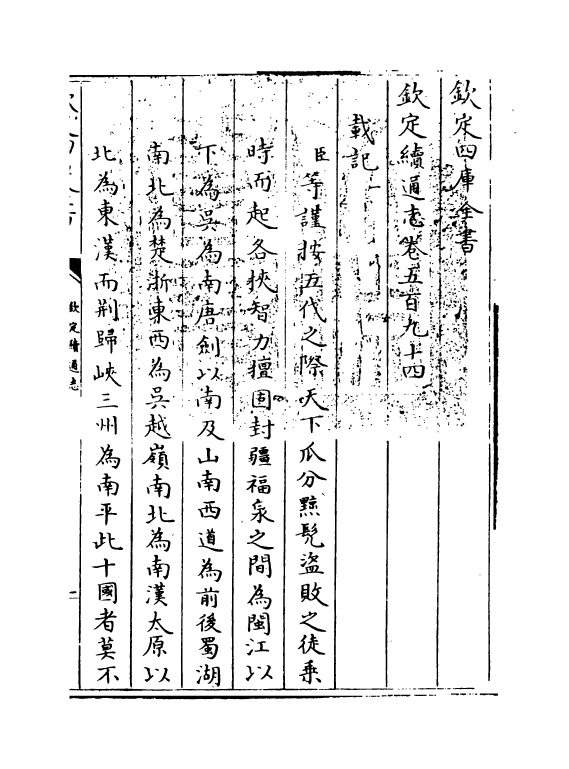 欽定四庫全書
欽定續通志卷五百九十四
載記一
臣等謹按五代之際天下瓜分黥髡盜敗之徒乗
時而起各挾智力擅固封疆福泉之間為閩江以
下為吳為南唐劍以南及山南西道為前後蜀湖
南北為楚浙東西為吳越嶺南北為南漢太原以
北為東漢而荆歸峽三州為南平此十國者莫不
欽定續通志